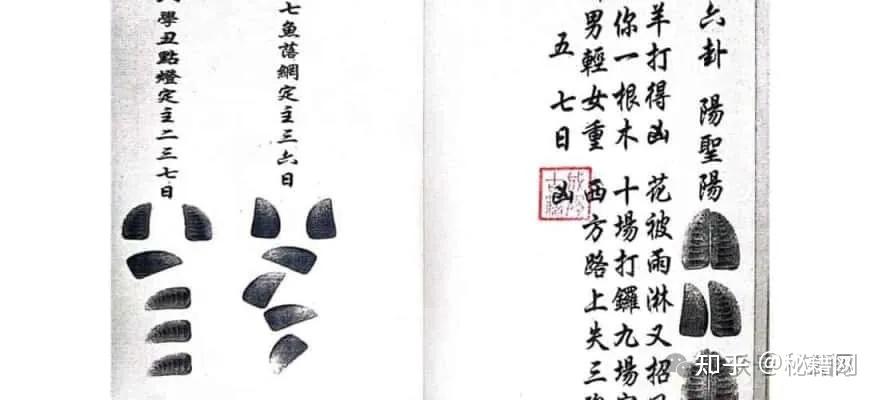 六卦 陽聖陽
羊打得凶 花被雨淋又招
你一根木 十場打鑼九場
男輕女重 西方路上失三
五七日 凶
七魚落網定主三六日
學丑點燈定主二三七日
知乎 @秘籍网